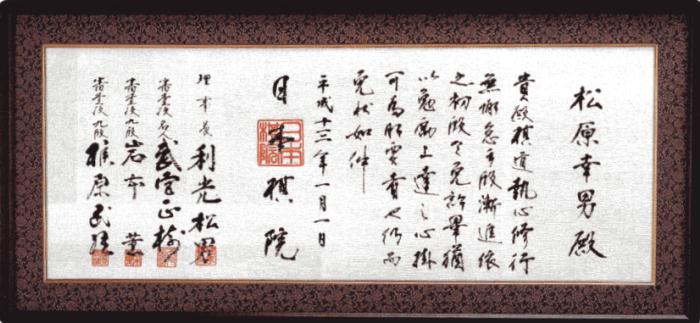 松原幸男殿
貴殿棋道執心修行
無懈怠手段漸進依
之初段令免許畢猶
以勉励上達之心掛
可為肝要者也仍而
免状如件
平成十三年一月一日
日本棋院
理事長 利光松男
審査役 名人 武宮正樹
審査役 九段 岩本薫
審査役 九段 梶原武雄